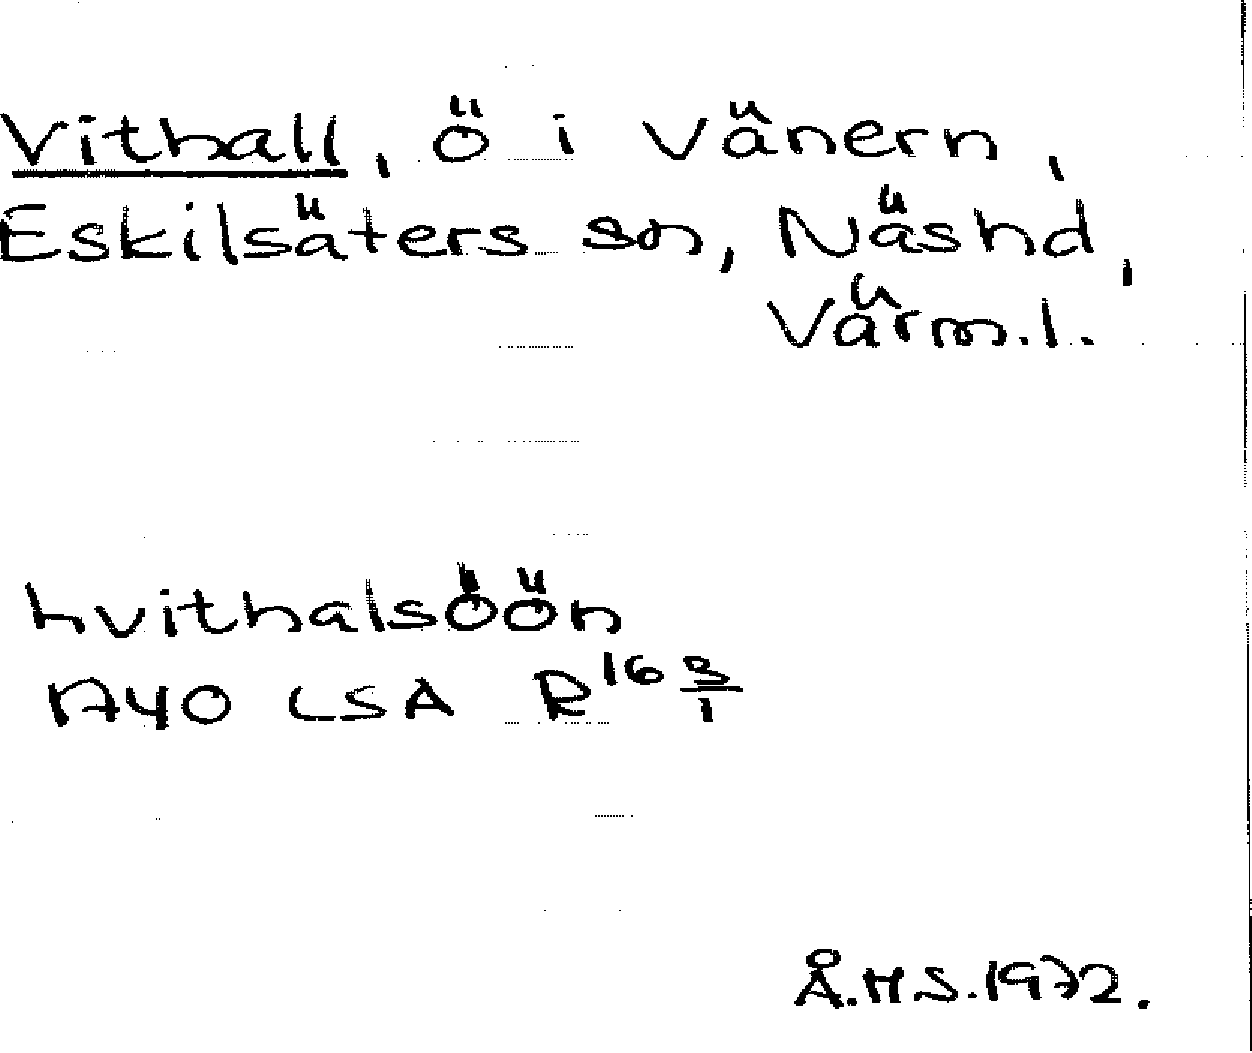 Vithall, ö i Vänern,
Eskilsäters sn, Näshd,
Värm.l.
hvithalsöön
1740 LSA R16 3/1
Å.H S.1972.